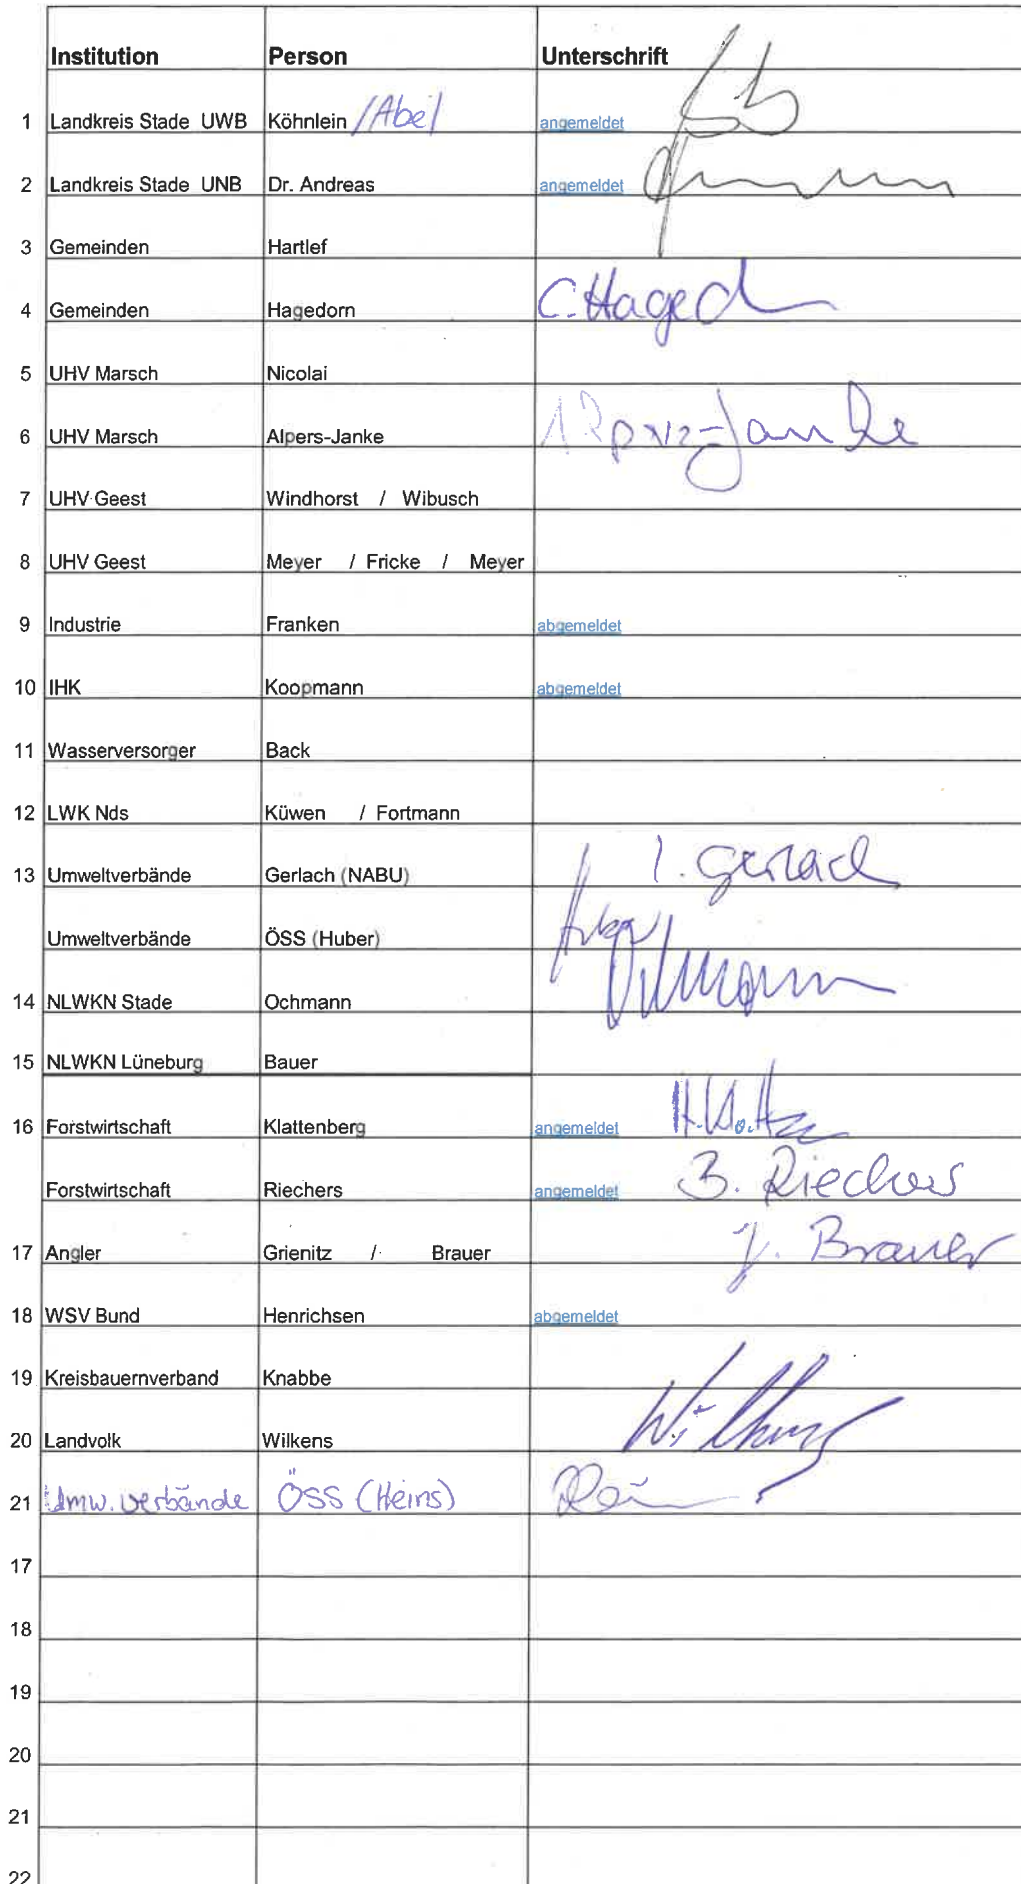 Institution Person Unterschrift
1 Landkreis Stade UWB Köhnlein /Abel angemeldet
2 Landkreis Stade UNB Dr. Andreas angemeldet
3 Gemeinden Hartlef
4 Gemeinden Hagedorn C. Hagedorn
5 UHV Marsch Nicolai
6 UHV Marsch Alpers-Janke Alpers-Janke
7 UHV Geest Windhorst / Wibusch
8 UHV Geest Meyer / Fricke / Meyer
9 Industrie Franken abgemeldet
10 IHK Koopmann abgemeldet
11 Wasserversorger Back
12 LWK Nds Küwen / Fortmann
13 Umweltverbände Gerlach (NABU) I. Gerlach
Umweltverbände ÖSS (Huber) Huber
14 NLWKN Stade Ochmann Ochmann
15 NLWKN Lüneburg Bauer
16 Forstwirtschaft Klattenberg angemeldet
Forstwirtschaft Riechers angemeldet B. Riechers
17 Angler Grienitz / Brauer J. Brauer
18 WSV Bund Henrichsen abgemeldet
19 Kreisbauernverband Knabbe
20 Landvolk Wilkens Wilkens
21 Umw. verbände ÖSS (Heins)
17
18
19
20
21
22